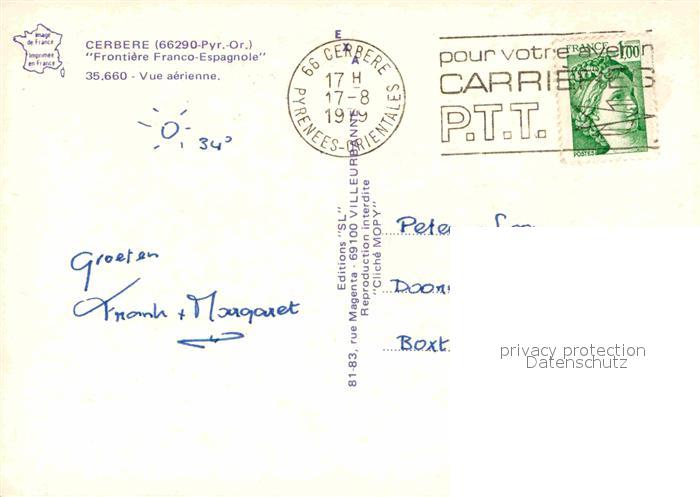 Image
de France
Imprimée
en France
CERBERE (66290-Pyr.-Or.)
"Frontière Franco-Espagnole"
35.660 - Vue aérienne.
34°
Groeten
Frank + Margaret
EXA
Editions "SL"
81-83, rue Magenta - 69100 VILLEURBANNE
Reproduction interdite
"Cliché MOPY"
66 CERBERE
17 H
17-8
1979
PYRENEES-ORIENTALES
pour votre avenir
CARRIERES
P.T.T.
FRANCE 1,00
POSTES
Peter
Boxt
privacy protection
Datenschutz